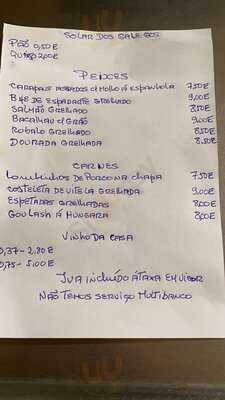 SOLAR DOS GALEGOS
PÃO 0,50€
QUEIJO 2,00€
PEIXES
CARAPAUS ASSADOS C/ MOLHO À ESPANHOLA 7,50€
BIFE DE ESPADARTE GRELHADO 9,00€
SALMÃO GRELHADO 8,50€
BACALHAU C/ GRÃO 9,00€
ROBALO GRELHADO 8,50€
DOURADA GRELHADA 8,50€
CARNES
Lombinhos DE PORCO NA CHAPA 7,50€
COSTELETA DE VITELA GRELHADA 9,00€
ESPETADAS GRELHADAS 8,00€
GOULASH À HUNGARA 8,00€
VINHO DA CASA
0,37 - 2,80€
0,75 - 5,00€
IVA INCLUÍDO À TAXA EM VIGOR
NÃO TEMOS SERVIÇO MULTIBANCO